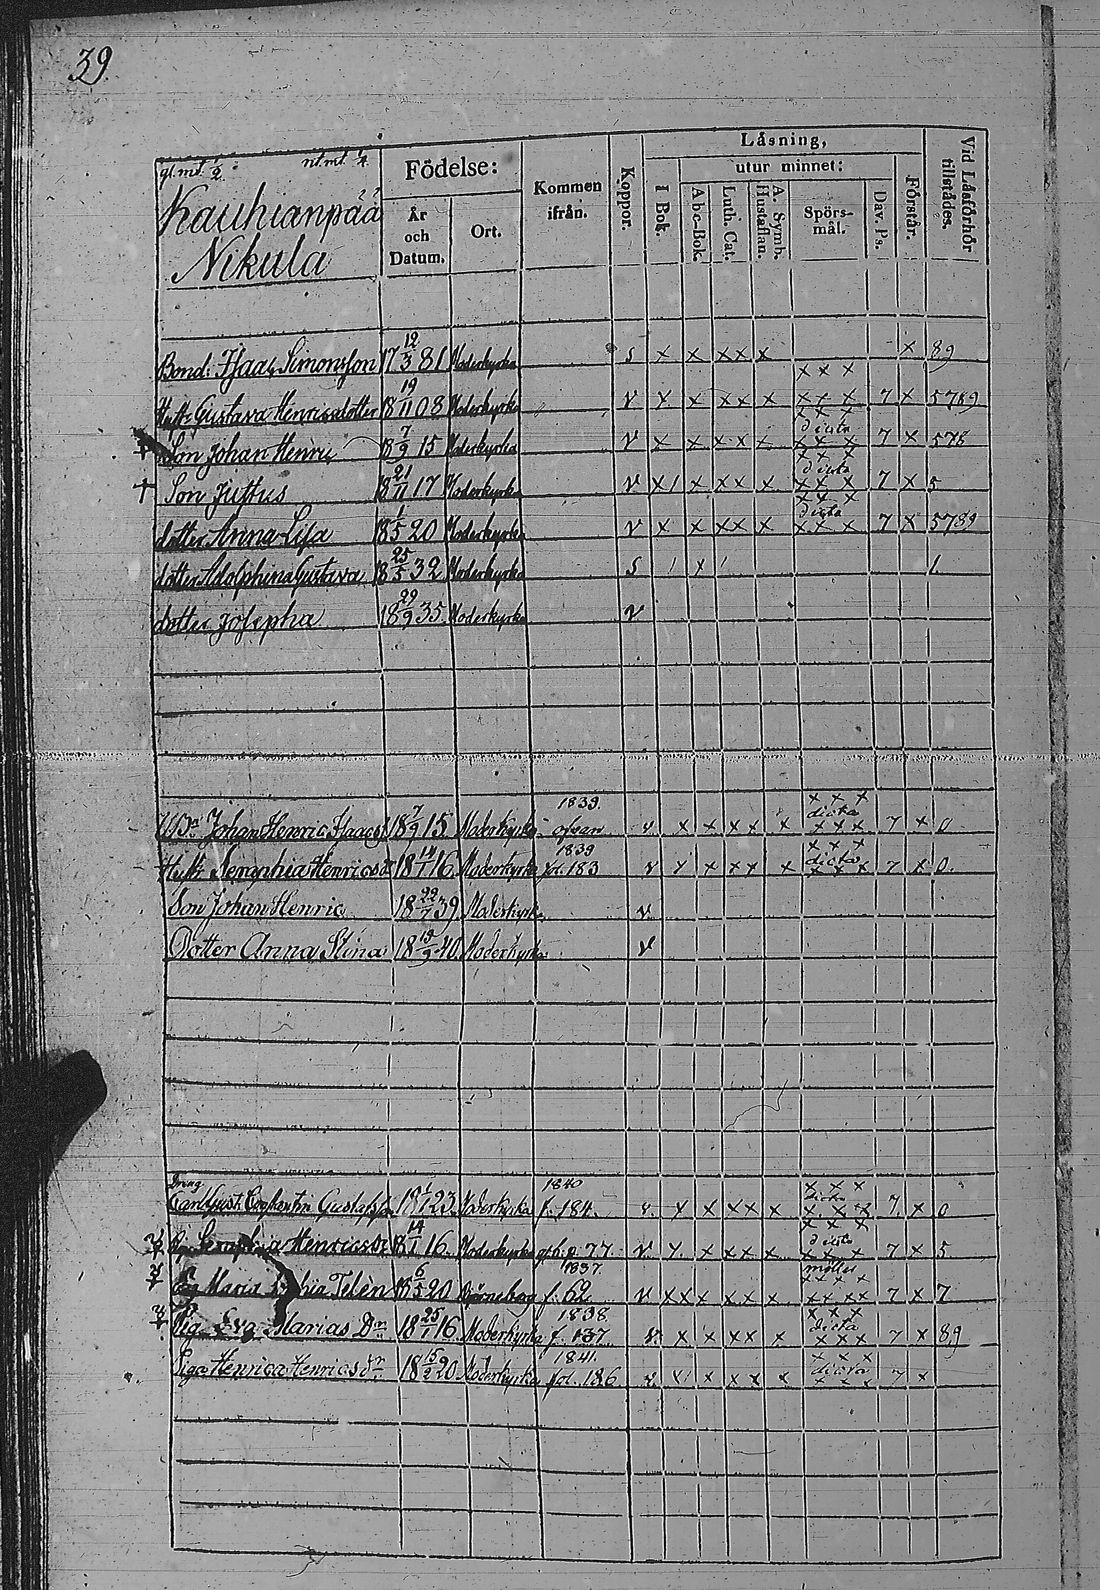 39
gl. mt. 1/2 nt. mt. 1/4
Kauhianpää
Nikula
Födelse:
År och Datum.
Ort.
Kommen ifrån.
Koppor.
Läsning,
I Bok.
utur minnet:
Abc-Bok.
Luth. Cat.
A. Symb. Hustaflan.
Spörs-mål.
Dav. Ps.
Förstår.
Vid Läsförhör tillstädes.
Bond. Isaac Simonsson 17 12/3 81 Moderkyrka s x x xx x x x x x 89
Hustr. Gustava Henricsdotter 18 19/11 08 Moderkyrka v x x xx x x x x 7 x 5789
+ Son Johan Henric 18 7/9 15 Moderkyrka v x x x x x x x x dicta x x x 7 x 578
† Son Justus 18 21/11 17 Moderkyrka v x x xx x x x x dicta x x x 7 x 5
dotter Anna Lisa 18 1/5 20 Moderkyrka v x x xx x x x x dicta x x x 7 x 5789
dotter Adolphina Gustava 18 25/5 32 Moderkyrka s / x / 1
dotter Josepha 18 29/9 35 Moderkyrka v
Johan Henric Isaacs 18 7/9 15 Moderkyrka 1839 ofvan v x x xx x x x x dicta x x x 7 x 0
Hustr. Seraphia Henricsdr 18 14/1 16 Moderkyrka 1839 fol. 183 v x x xx x x x x dicta x x x 7 x 0
Son Johan Henric 18 22/7 39 Moderkyrka v
Dotter Anna Stina 18 19/9 40 Moderkyrka v
Dreng
Carl Gust. Gustafsson 18 1/1 23 Moderkyrka 1840 f. 184. v x x xx x x x x x x x 7 x 0
Seraphia Henricsdr 18 14/1 16 Moderkyrka p. 77 v x x xx x x x x dicta x x x 7 x 5
Maria Telèn 18 6/5 20 Björneborg 1837. f. 62 v xx x xx x x x x x 7 x 7
Piga Eva Marias Dr 18 25/1 16 Moderkyrka 1838. f. 137 v x x xx x x x x dicta x x x 7 x 89
Piga Henrica Henricsdr 18 15/2 20 Moderkyrka 1841. fol. 186 v x x x x x x x x dicta x x x 7 x